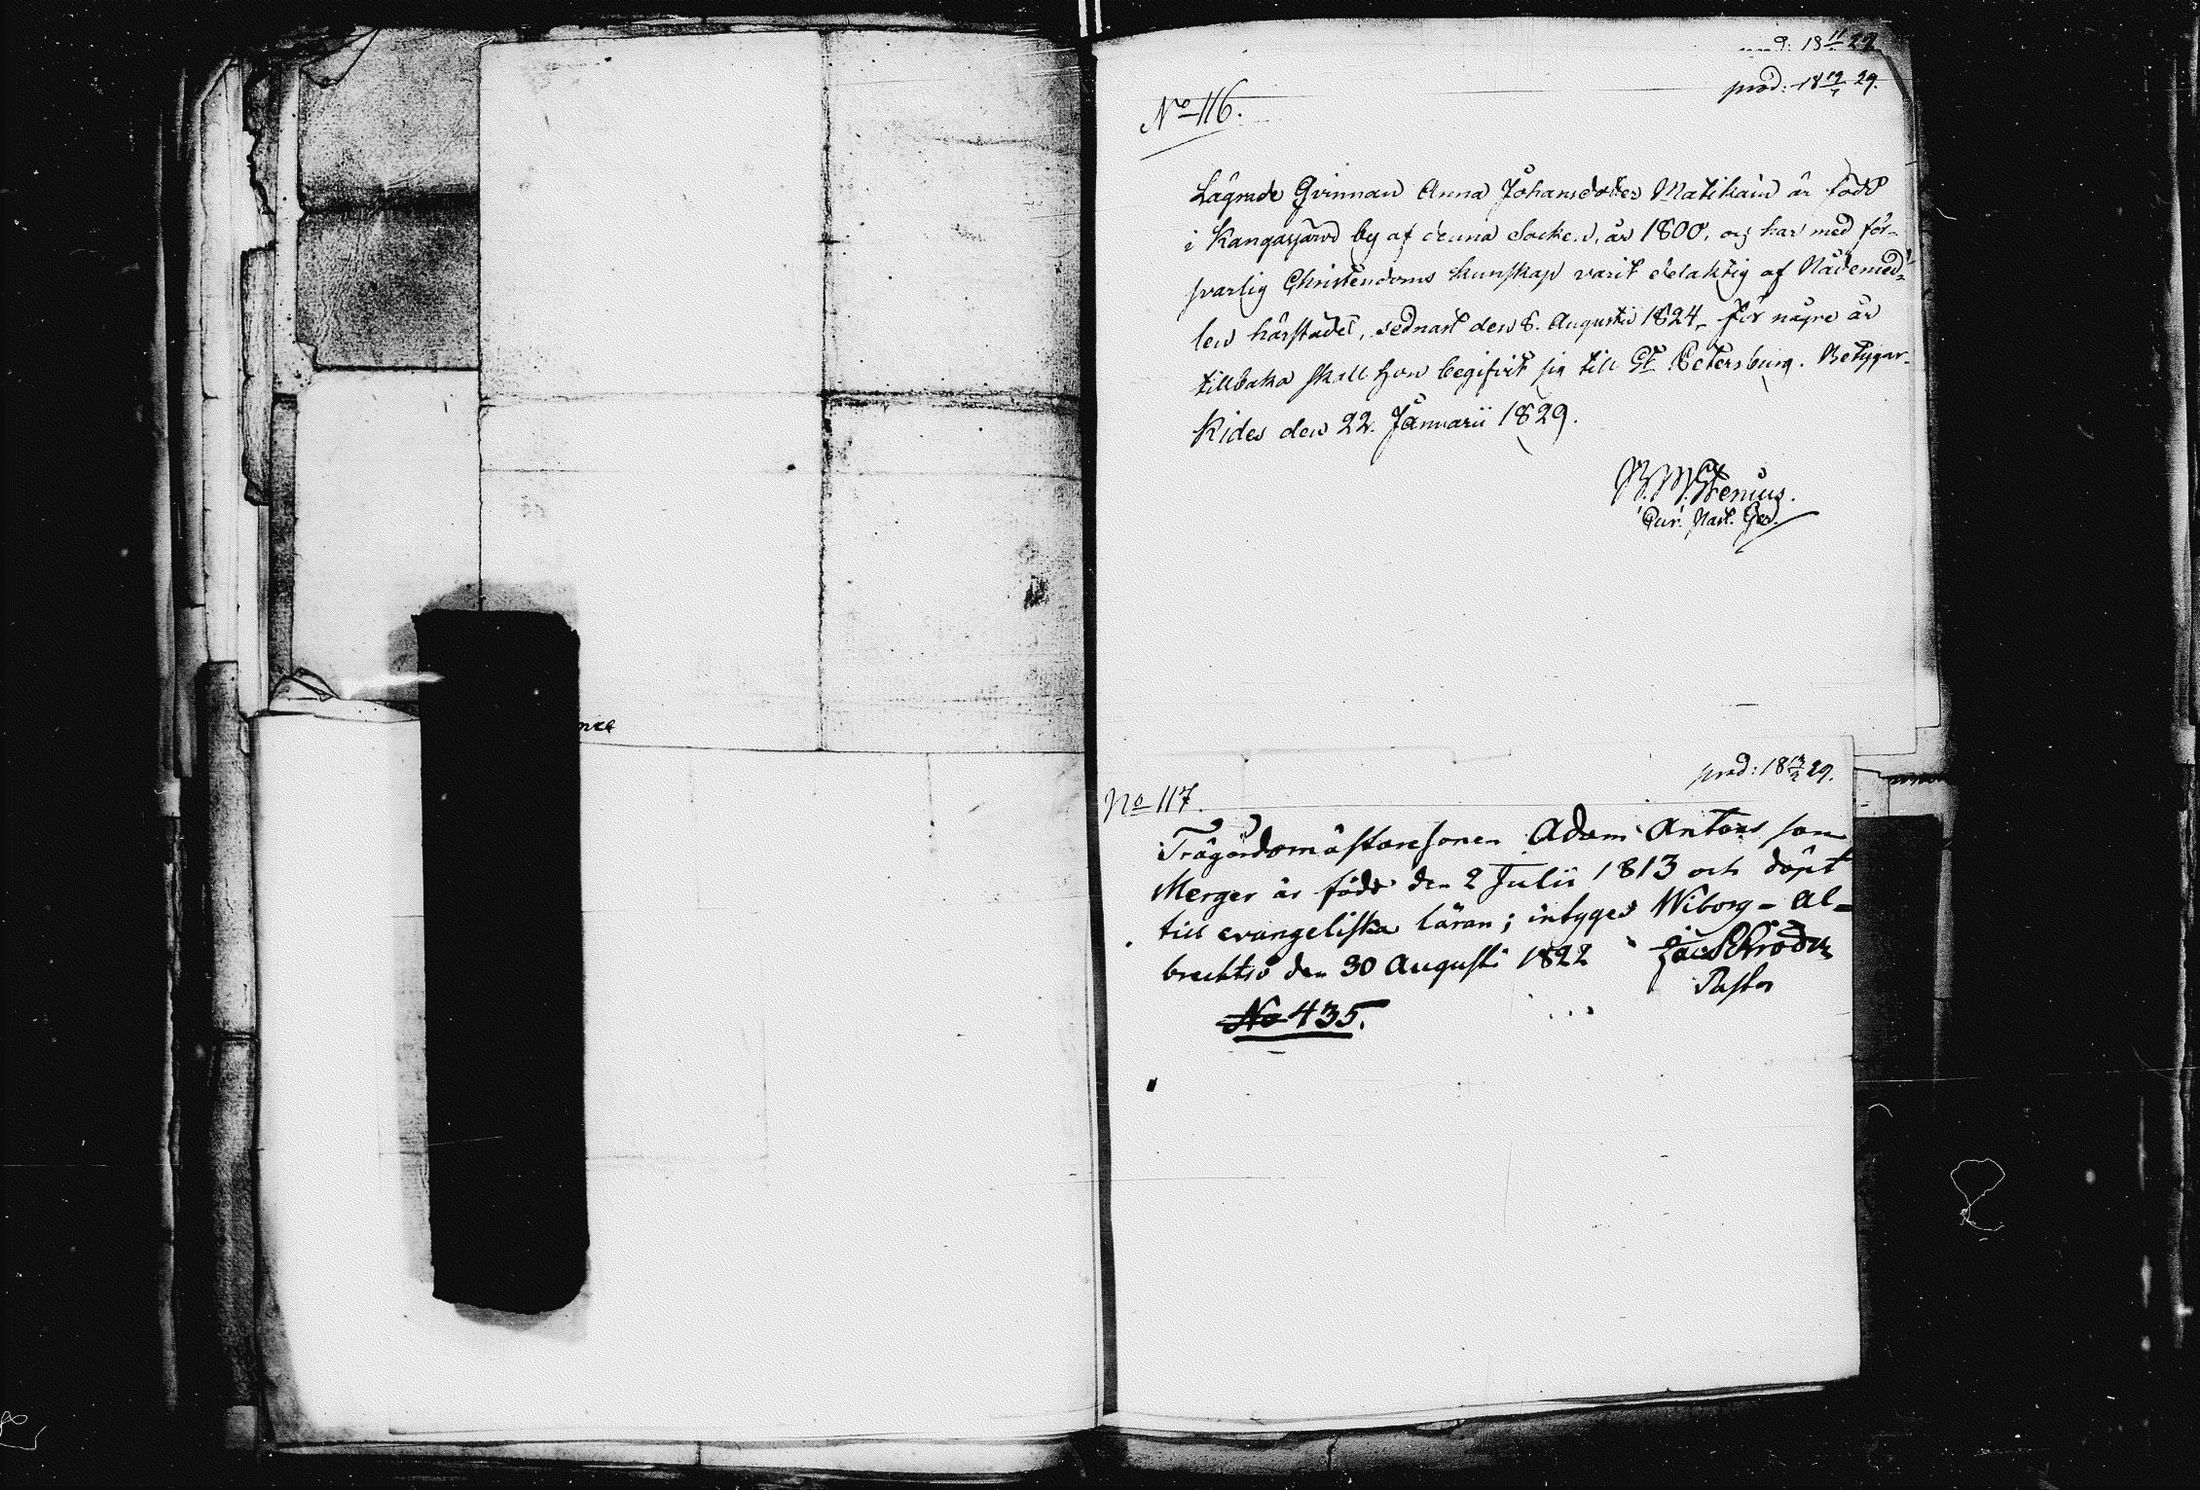 prod: 18 12/1 29.
No 116.
Lägrade Qvinnan Anna Johansdotter Matikain är född
i Kangasjärvi by af denna Socken, år 1800, och har med för-
svarlig Christendoms kunskap varit delaktig af Nådemed-
len härstädes, sednast den 8. Augusti 1824. För några år
tillbaka skall hon begifvit sig till St Petersburg. Betygar.
Kides den 22. Januarii 1829.
Past.
prod: 18 13/2 29.
No 117.
Trägårdsmästaresonen Adam Antons son
Merger är född den 2 Julii 1813 och döpt
till evangeliska läran; intyges Wiborg - Al-
brechtso den 30 Augusti 1822
Pastor
No 435.